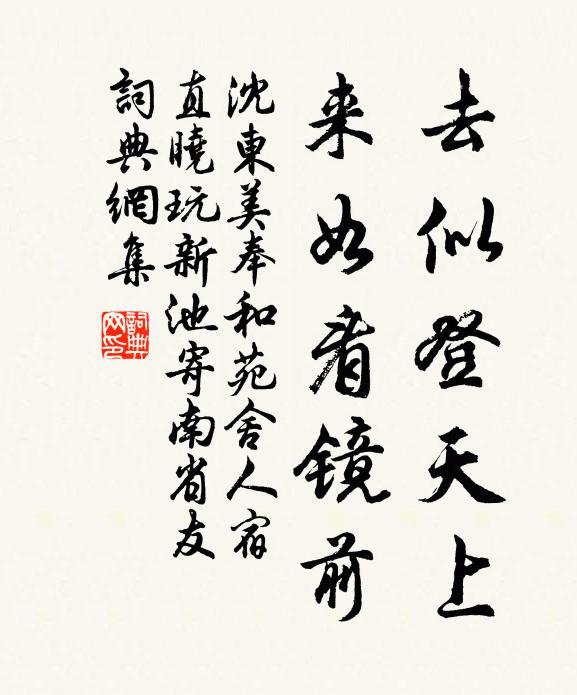 去似登天上
来如看镜前
沈東美奉和苑舍人宿
直曉玩新池寄南省友
詞典網集
詞典網印